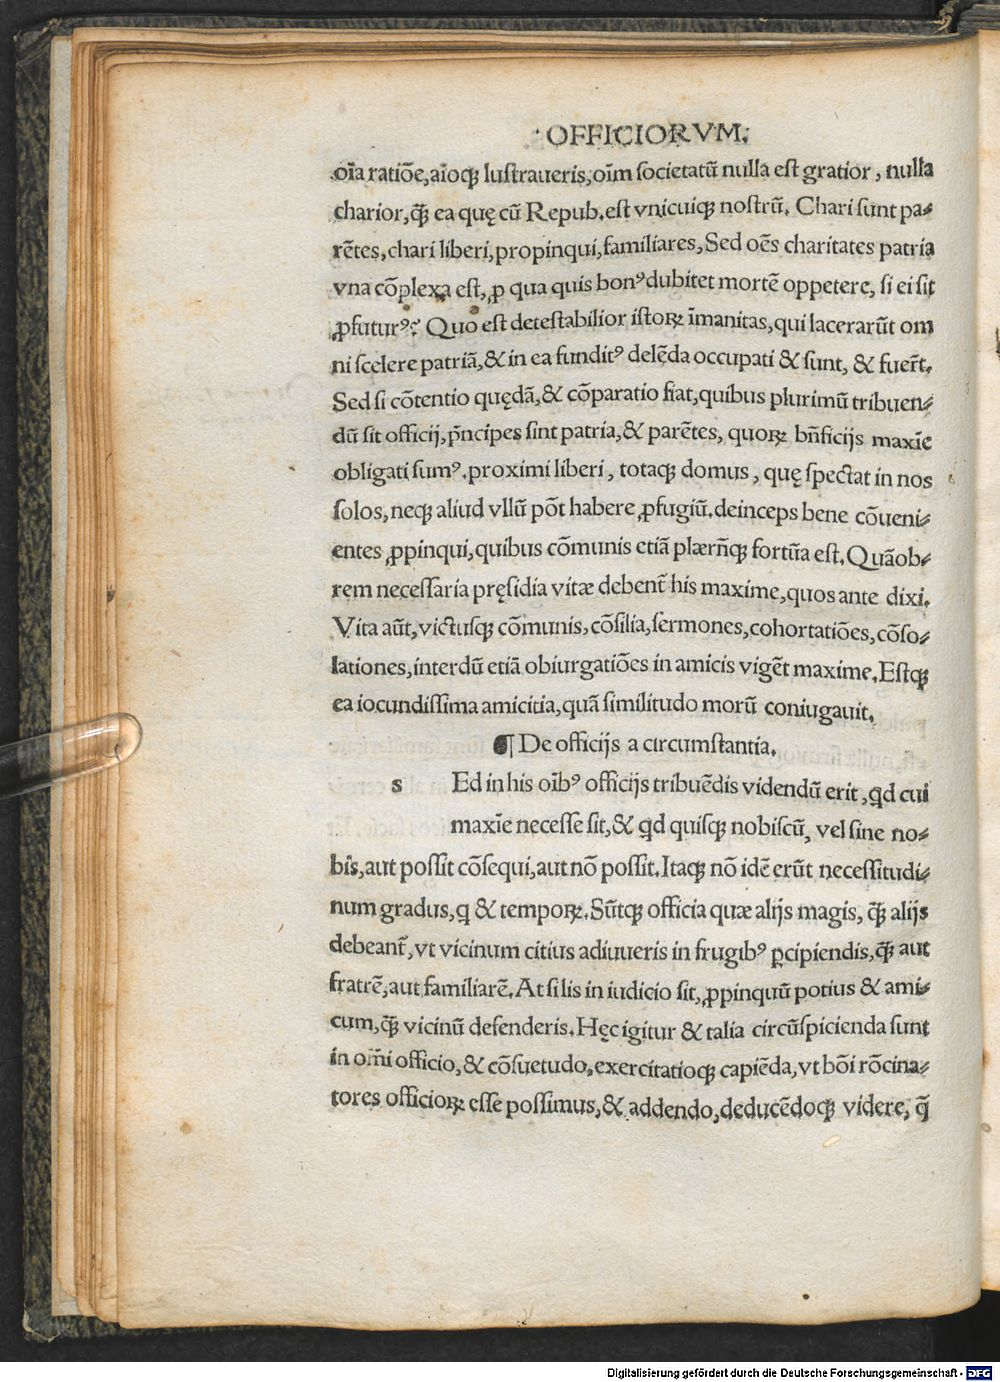 ·OFFICIORVM.
oīa ratiõe, aīoqꝫ lustraueris, oīm societatũ nulla est gratior, nulla
charior, q̃ꝫ ea quę cũ Repub. est vnicuiqꝫ nostrũ. Chari sunt pa⸗
rẽtes, chari liberi, propinqui, familiares, Sed oẽs charitates patria
vna cõplexa est, ꝓ qua quis bonꝰ dubitet mortẽ oppetere, si ei sit
ꝓfuturꝰ? Quo est detestabilior istoꝝ īmanitas, qui lacerarũt om
ni scelere patriã, & in ea funditꝰ delẽda occupati & sunt, & fuer̃t.
Sed si cõtentio quędã, & cõparatio fiat, quibus plurimũ tribuen⸗
dũ sit officij, p̃ncipes sint patria, & parẽtes, quoꝝ bñficijs maxīe
obligati sumꝰ. proximi liberi, totaqꝫ domus, quę spectat in nos
solos, neqꝫ aliud vllũ põt habere ꝓfugiũ. deinceps bene cõueni⸗
entes ꝓpinqui, quibus cõmunis etiã plærñqꝫ fortũa est. Quãob⸗
rem necessaria pręsidia vitæ debent̃ his maxime, quos ante dixi.
Vita aũt, victusqꝫ cõmunis, cõsilia, sermones, cohortatiões, cõso⸗
lationes, interdũ etiã obiurgatiões in amicis vigẽt maxime. Estqꝫ
ea iocundissima amicitia, quã similitudo morũ coniugauit.
¶ De officijs a circumstantia.
s Ed in his oībꝰ officijs tribuẽdis videndũ erit, qd cui
maxīe necesse sit, & qd quisqꝫ nobiscũ, vel sine no⸗
bis, aut possit cõsequi, aut nõ possit. Itaqꝫ nõ idẽ erũt necessitudi⸗
num gradus, q & tempoꝝ. Sũtqꝫ officia quæ alijs magis, q̃ꝫ alijs
debeant̃, vt vicinum citius adiuueris in frugibꝰ ꝑcipiendis, q̃ꝫ aut
fratrẽ, aut familiarẽ. At si lis in iudicio sit, ꝓpinquũ potius & ami⸗
cum, q̃ꝫ vicinũ defenderis. Hęc igitur & talia circũspicienda sunt
in om̃i officio, & cõsuetudo, exercitatioqꝫ capiẽda, vt bõi rõcina⸗
tores officioꝝ esse possimus, & addendo, deducẽdoqꝫ videre, q̃
Digitalisierung gefördert durch die Deutsche Forschungsgemeinschaft - DFG